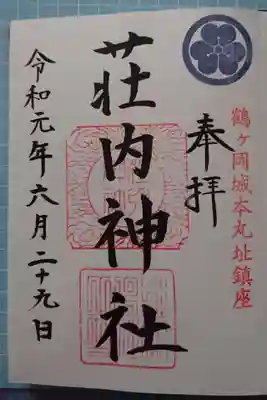 鶴ヶ岡城本丸址鎮座
奉拝
荘内神社
令和元年六月二十九日